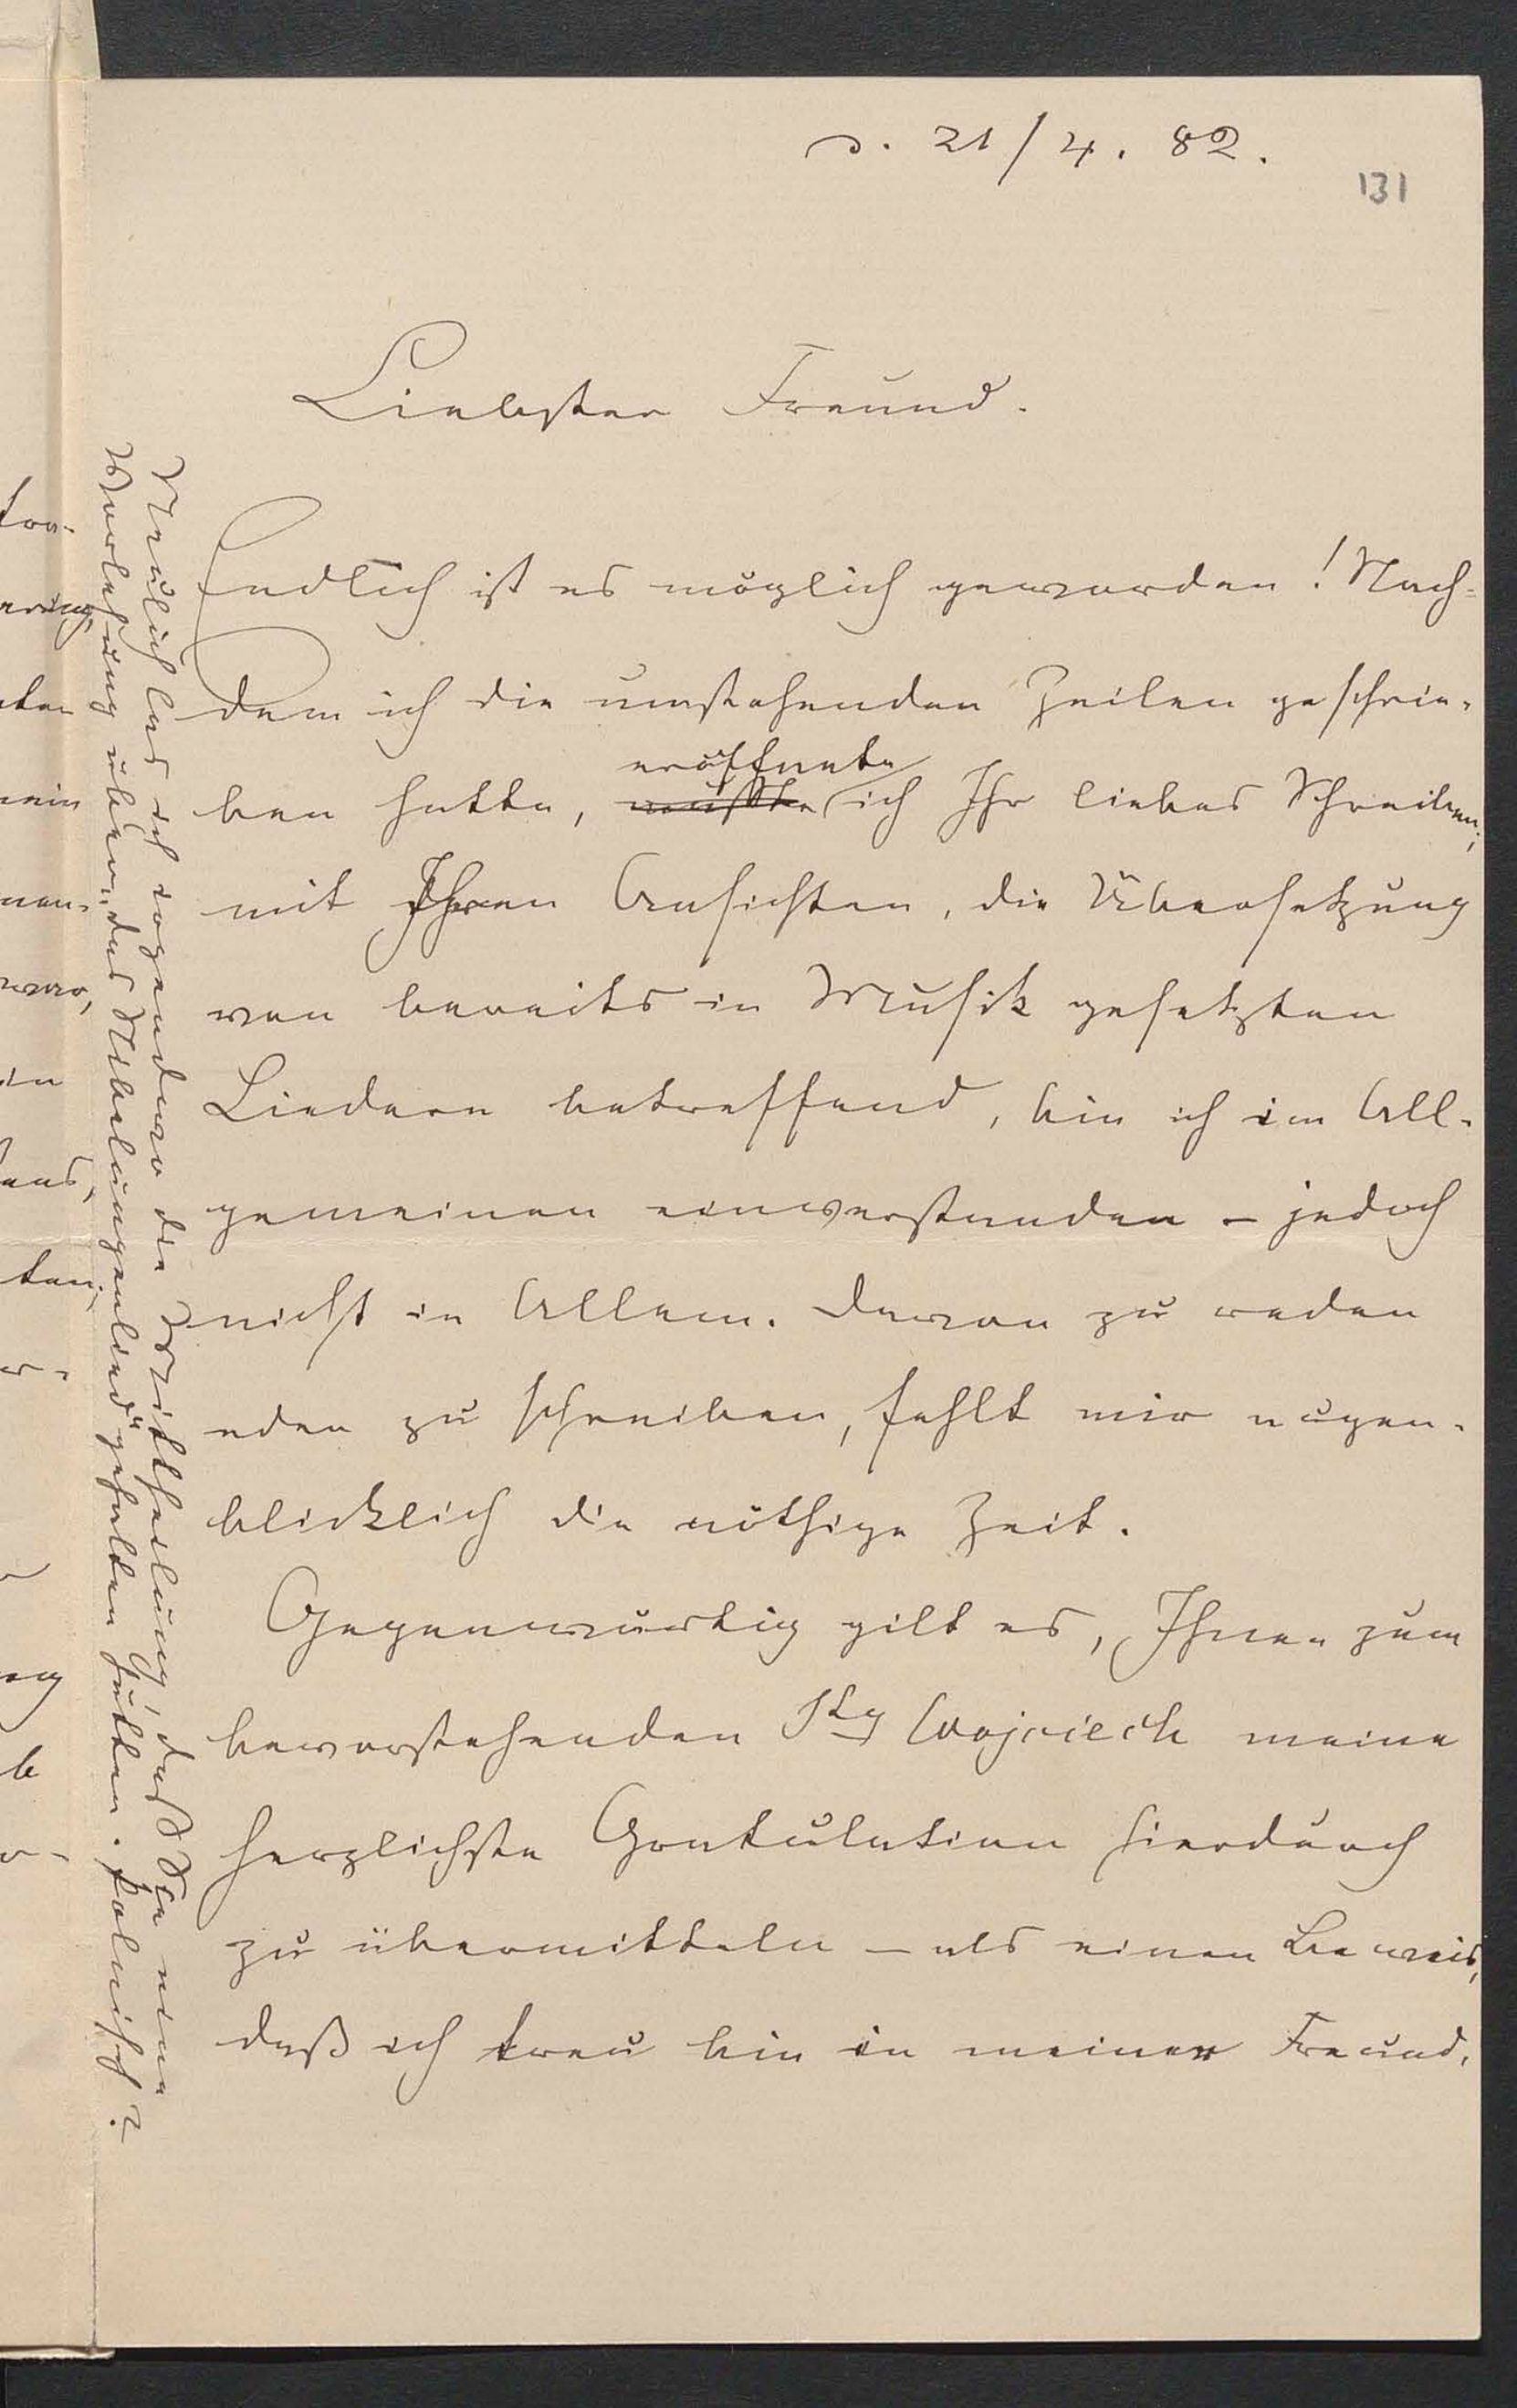 d. 21/4. 82.
131
Liebster Freund.
Endlich ist es möglich geworden! Nach-
dem ich die umstehenden Zeilen geschrie-
ben hatte, eröffnete ich Ihr liebes Schreiben;
mit Ihren Ansichten, die Übersetzung
von bereits in Musik gesetzten
Liedern betreffend, bin ich im All-
gemeinen einverstanden – jedoch
nicht in Allem. Davon zu reden
oder zu schreiben, fehlt mir augen-
blicklich die nöthige Zeit.
Gegenwärtig gilt es, Ihnen zum
bevorstehenden Stg Wojciech meine
herzlichste Gratulation hierdurch
zu übermitteln – als einen Beweis,
daß ich treu bin in meiner Freund-
Neulich las ich irgendwo die Mittheilung, daß Sie eine
Vorlesung über „das Nibelungenlied" gehalten hätten. Polnisch?